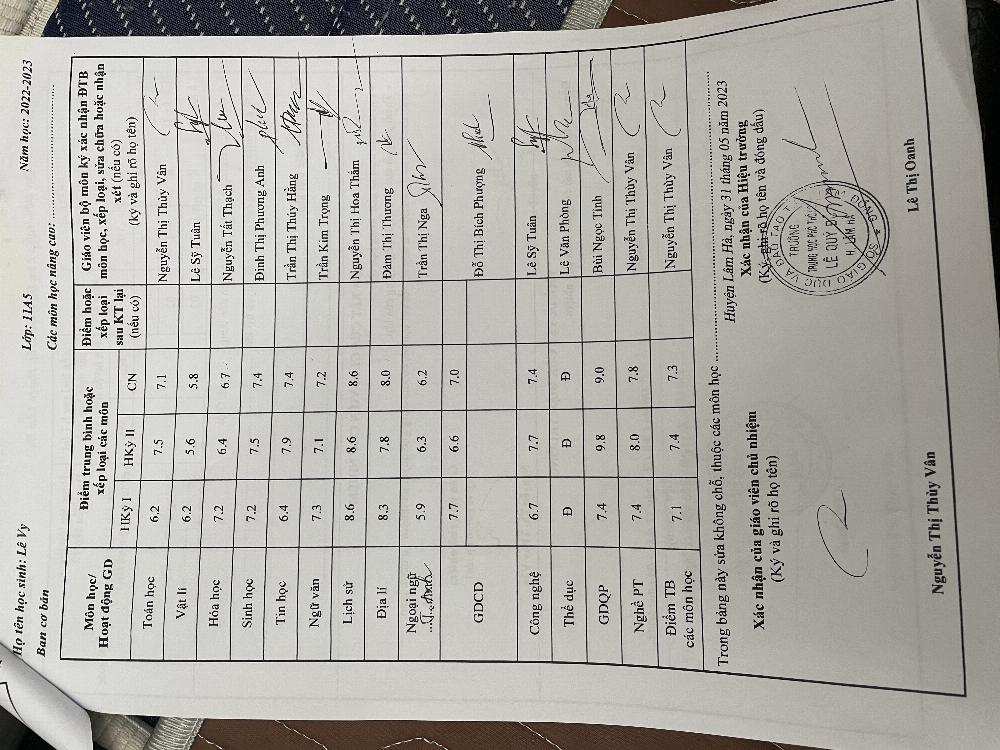 Họ tên học sinh: Lê Vy Lớp: 11A5 Năm học: 2022-2023
Ban cơ bản Các môn học nâng cao:
Môn học/ Hoạt động GD
Điểm trung bình hoặc xếp loại các môn
HKỳ I HKỳ II CN
Điểm hoặc xếp loại sau KT lại (nếu có)
Giáo viên bộ môn ký xác nhận ĐTB môn học, xếp loại, sửa chữa hoặc nhận xét (nếu có)
(ký và ghi rõ họ tên)
Toán học 6.2 7.5 7.1 Nguyễn Thị Thùy Vân
Vật lí 6.2 5.6 5.8 Lê Sỹ Tuân
Hóa học 7.2 6.4 6.7 Nguyễn Tất Thạch
Sinh học 7.2 7.5 7.4 Đinh Thị Phương Anh
Tin học 6.4 7.9 7.4 Trần Thị Thúy Hằng
Ngữ văn 7.3 7.1 7.2 Trần Kim Trọng
Lịch sử 8.6 8.6 8.6 Nguyễn Thị Hoa Thắm
Địa lí 8.3 7.8 8.0 Đàm Thị Thương
Ngoại ngữ 5.9 6.3 6.2 Trần Thị Nga
GDCD 7.7 6.6 7.0 Đỗ Thị Bích Phượng
Công nghệ 6.7 7.7 7.4 Lê Sỹ Tuân
Thể dục Đ Đ Đ Lê Văn Phòng
GDQP 7.4 9.8 9.0 Bùi Ngọc Tình
Nghề PT 7.4 8.0 7.8 Nguyễn Thị Thùy Vân
Điểm TB các môn học 7.1 7.4 7.3 Nguyễn Thị Thùy Vân
Trong bảng này sửa không chỗ, thuộc các môn học
Huyện Lâm Hà, ngày 31 tháng 05 năm 2023
Xác nhận của giáo viên chủ nhiệm
(Ký và ghi rõ họ tên)
Xác nhận của Hiệu trưởng
(Ký, ghi rõ họ tên và đóng dấu)
SỞ GIÁO DỤC VÀ ĐÀO TẠO
TRƯỜNG
TRUNG HỌC PHỔ THÔNG
LÊ QUÝ ĐÔN
H. LÂM HÀ
Nguyễn Thị Thùy Vân
Lê Thị Oanh